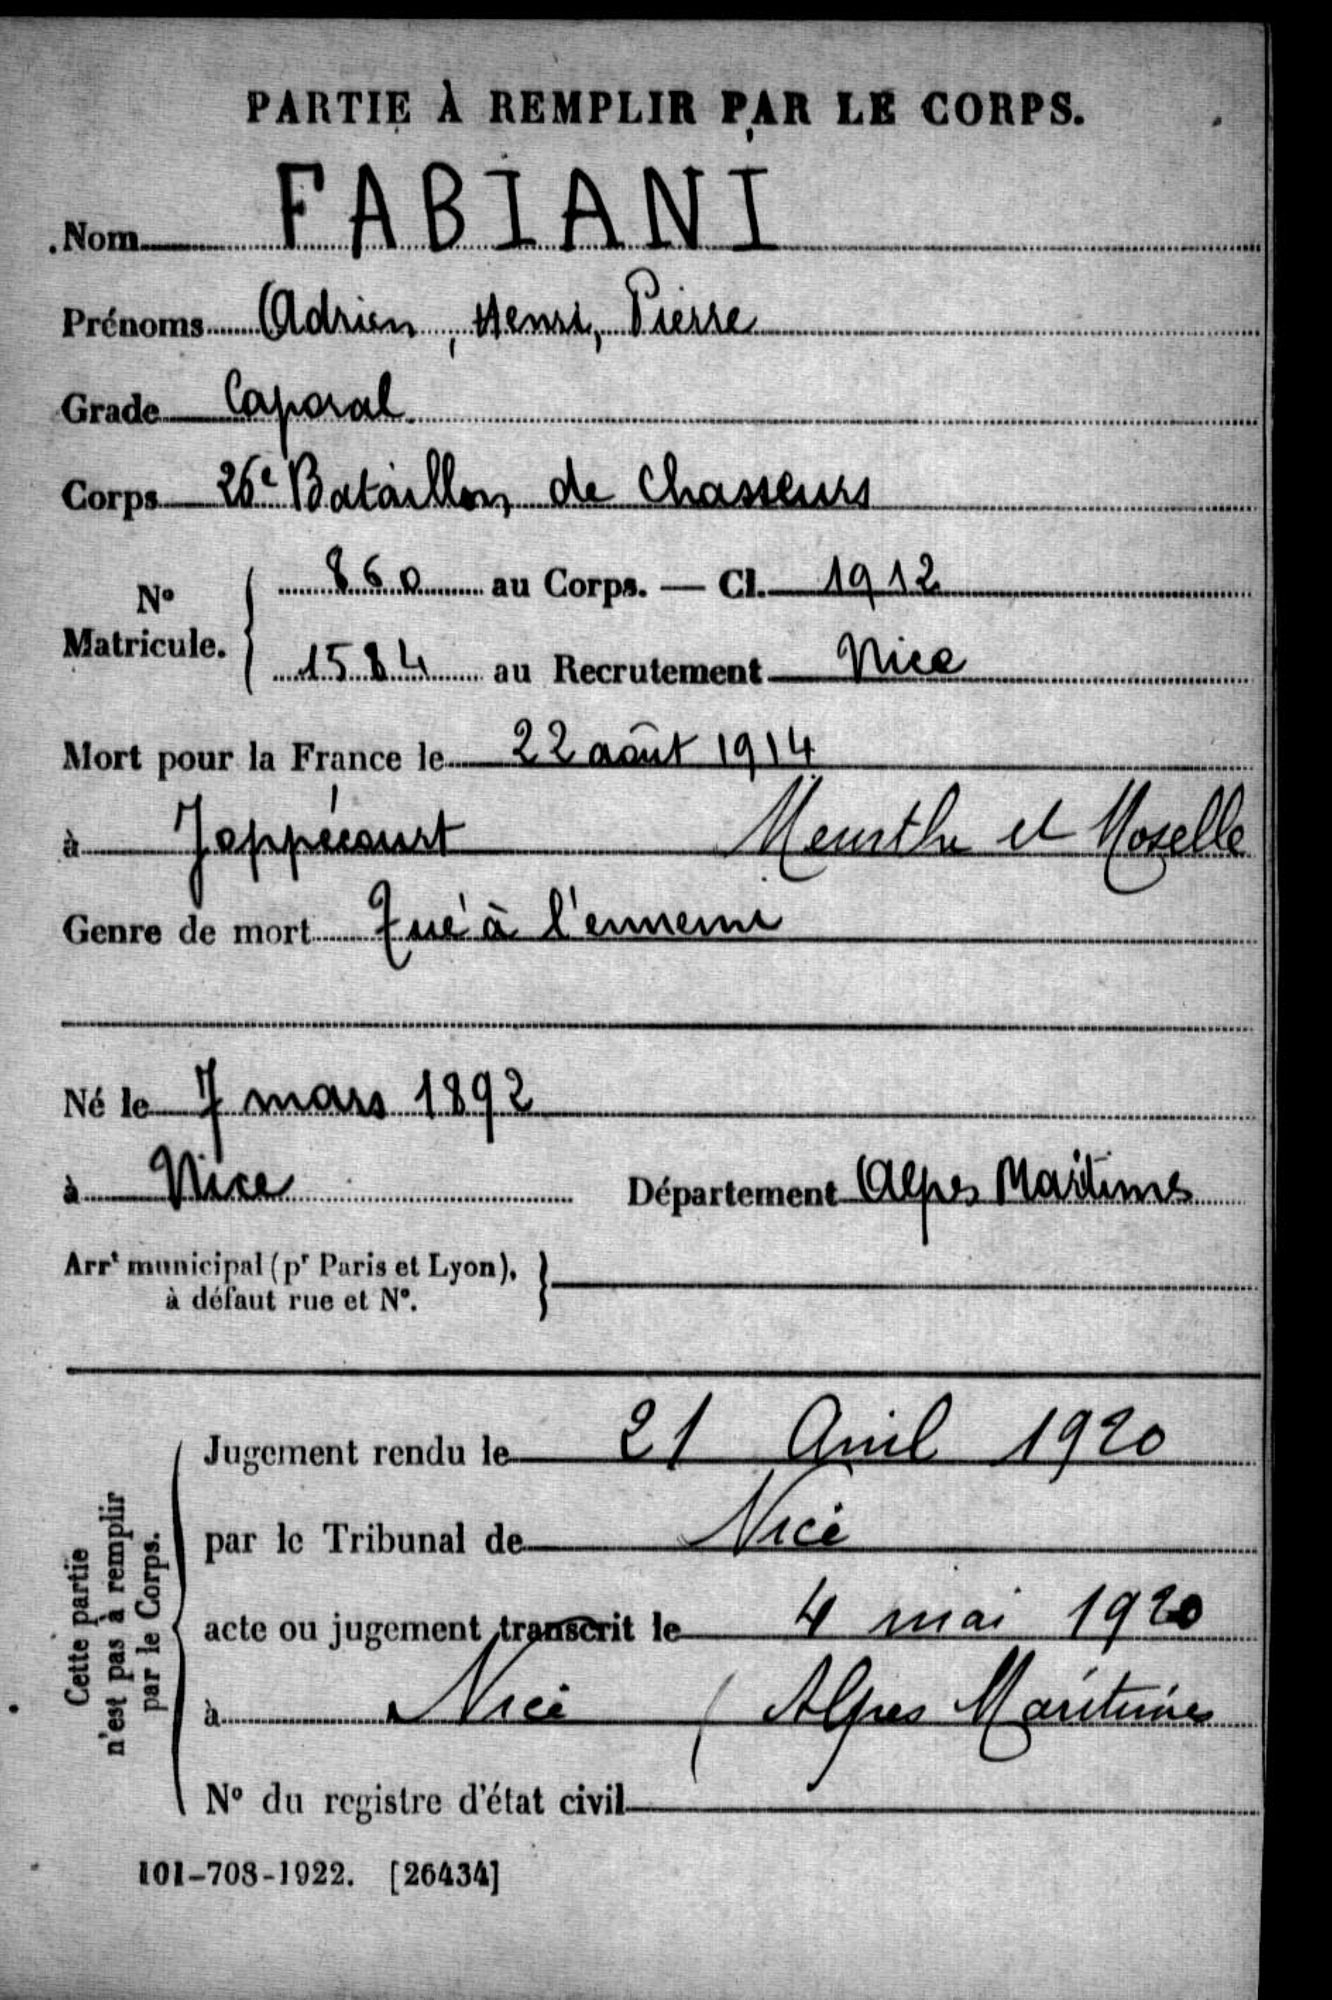 PARTIE À REMPLIR PAR LE CORPS.
Nom FABIANI
Prénoms Adrien, Henri, Pierre
Grade Caporal
Corps 26e Bataillon de Chasseurs
N° Matricule. 860 au Corps. — Cl. 1912
1584 au Recrutement Nice
Mort pour la France le 22 août 1914
à Joppécourt Meurthe et Moselle
Genre de mort Tué à l'ennemi
Né le 7 mars 1892
à Nice Département Alpes Maritimes
Arrt municipal (pr Paris et Lyon),
à défaut rue et N°.
Cette partie
n'est pas à remplir
par le Corps.
Jugement rendu le 21 Avril 1920
par le Tribunal de Nice
acte ou jugement transcrit le 4 mai 1920
à Nice (Alpes Maritimes
N° du registre d'état civil
101-708-1922. [26434]